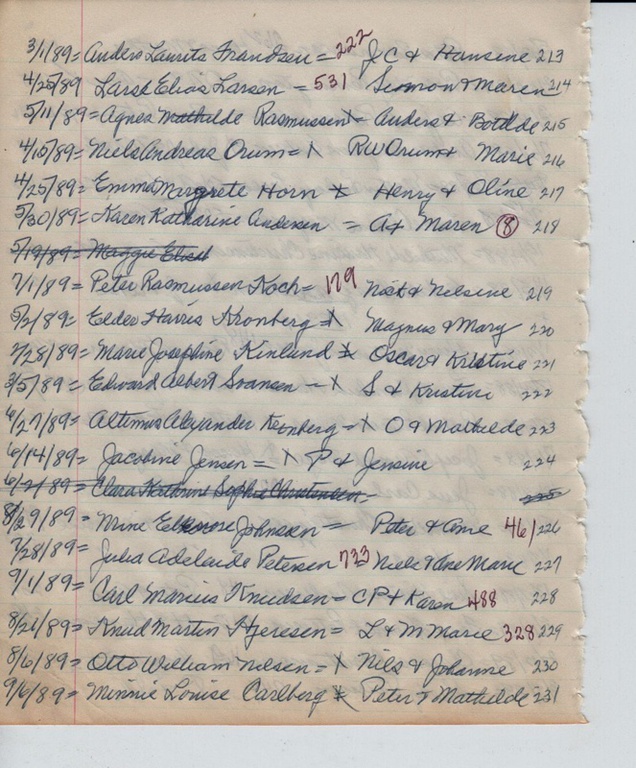 3/1/89= Anders Laurits Frandsen = 222 J C & Hansine 213
4/25/89 Lars Elias Larsen = 531 Seamon & Maren 214
5/11/89= Agnes Mathilde Rasmussen X= Anders & Botilde 215
4/15/89= Niels Andreas Orum = X RW Orum & Marie 216
4/25/89= Emma Margrete Horn X Henry & Oline 217
5/30/89= Karen Katharine Andersen = A & Maren 8 218
5/19/89= Maggie
7/1/89= Peter Rasmussen Koch = 179 Nick & Nelsine 219
5/2/89= Elder Harris Kronberg = X Magnus & Mary 220
2/28/89= Marie Josephine Kinlund X Oscar & Kristine 221
3/5/89= Edward Albert Svansen - X S & Kristine 222
6/27/89= Altimus Alexander Kronberg = X O & Mathilde 223
6/14/89= Jacobine Jensen = X P & Jensine 224
6/2/89= Clara Katarine Sophie Christensen 225
8/29/89= Mine Johnsen = Peter & Ane 461 226
7/28/89= Julia Adelaide Petersen 733 Niels & Ane Marie 227
9/1/89= Carl Marius Knudsen = CP & Karen 488 228
8/21/89= Knud Martin Hjeresen = L & M Marie 328 229
8/6/89= Otto William Nielsen = X Nils & Johanne 230
9/6/89= Minnie Louise Carlberg X Peter & Mathilde 231